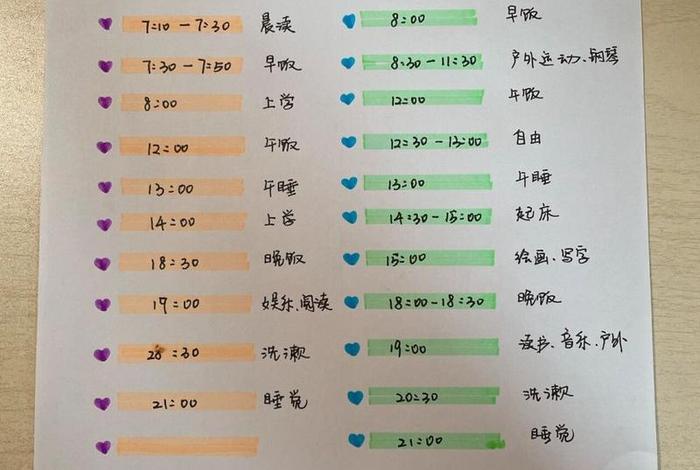 7:10 - 7:30 晨读
7:30 - 7:50 早饭
8:00 上学
12:00 午饭
13:00 午睡
14:00 上学
18:30 晚饭
19:00 娱乐、阅读
20:30 洗漱
21:00 睡觉
8:00 早饭
8:30 - 11:30 户外运动、钢琴
12:00 午饭
12:30 - 13:00 自由
13:00 午睡
14:30 - 15:00 起床
15:00 绘画、写字
18:00 - 18:30 晚饭
19:00 读书、音乐、户外
20:30 洗漱
21:00 睡觉